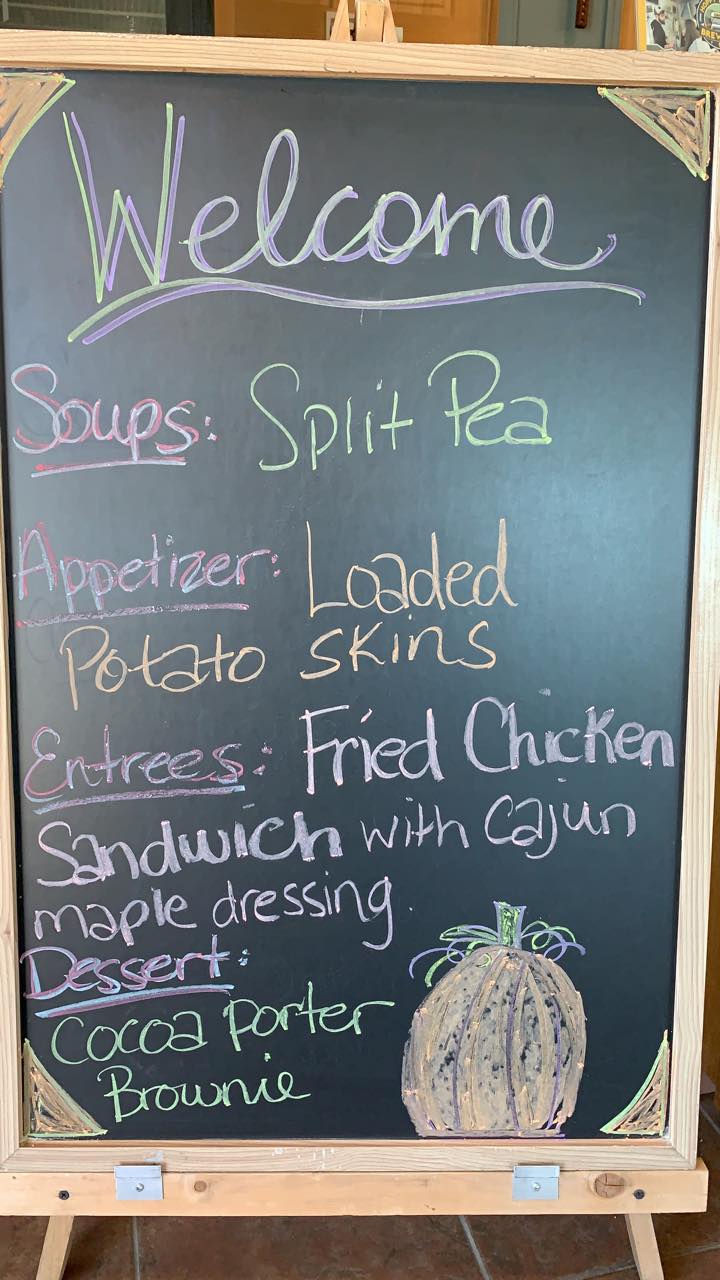 Welcome
Soups: Split Pea
Appetizer: Loaded
Potato skins
Entrees: Fried Chicken
Sandwich with Cajun
maple dressing.
Dessert:
Cocoa Porter
Brownie